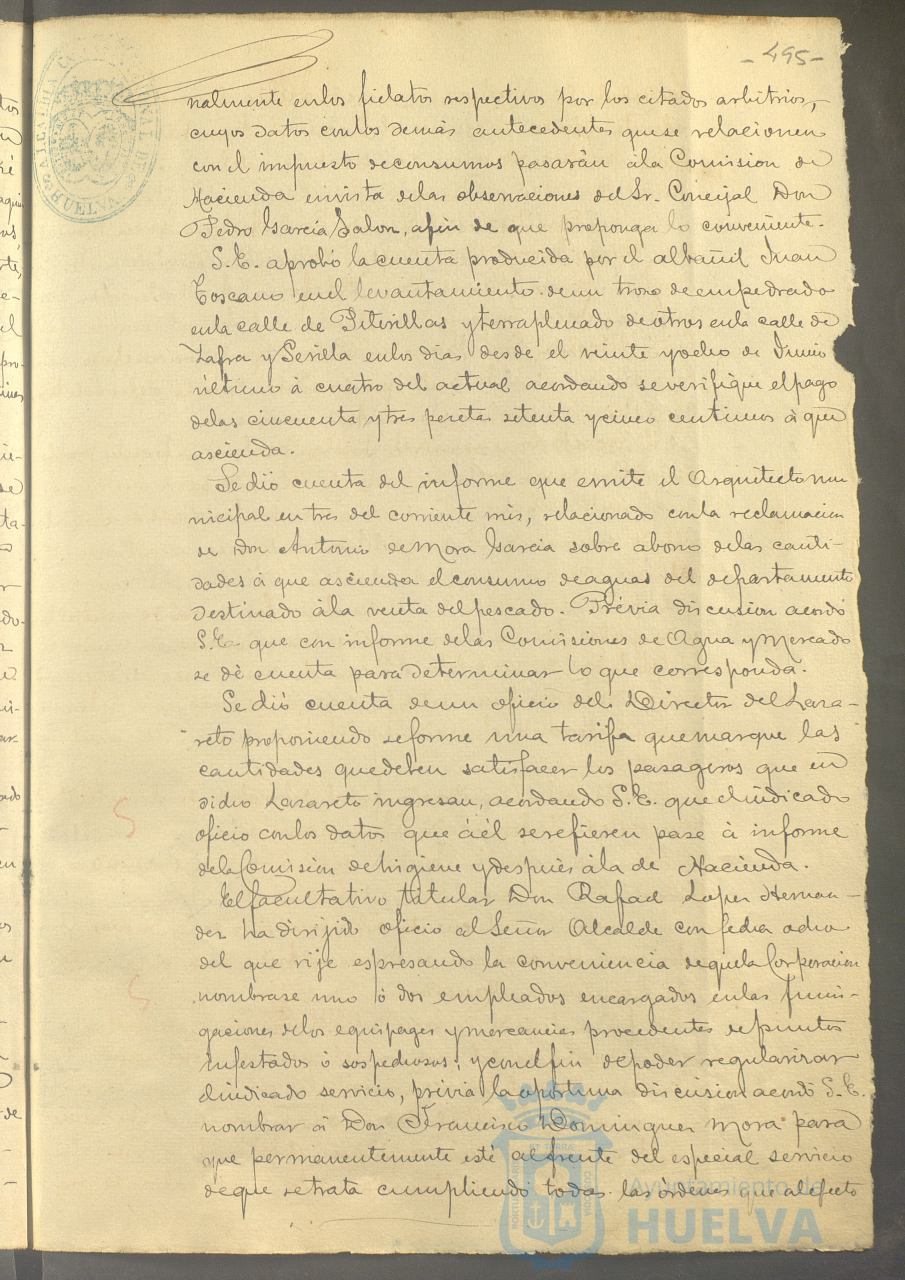 -495-
nalmente en los fielatos respectivos por los citados arbitrios,
cuyos datos con los demás antecedentes que se relacionen
con el impuesto de consumos pasarán á la Comision de
Hacienda en vista de las observaciones del Sr. Concejal Don
Pedro Garcia Jalon, a fin de que proponga lo conveniente.
S.E. aprobó la cuenta producida por el albañil Juan
Toscano en el levantamiento de un trozo de empedrado
en la calle de Piterillas y terraplenado de otros en la calle de
Zafra y Sevilla en los dias desde el veinte y ocho de Junio
último á cuatro del actual acordando se verifique el pago
de las cincuenta y tres pesetas setenta y cinco centimos á que
ascienda.
Se dió cuenta del informe que emite el Arquitecto mu
nicipal en tres del corriente mes, relacionado con la reclamacion
de Don Antonio de Mora Garcia sobre abono de las canti-
dades á que asciende el consumo de aguas del departamento
destinado á la venta del pescado. Prévia discusion acordó
S.E. que con informe de las Comisiones de Agua y Mercado
se dé cuenta para determinar lo que corresponda.
Se dió cuenta de un oficio del Director del Laza-
reto proponiendo se forme una tarifa que marque las
cantidades que deben satisfacer los pasageros que en
dicho Lazareto ingresan, acordando S.E. que el indicado
oficio con los datos que á él se refieren pase á informe
de la Comision de higiene y despues á la de Hacienda.
El facultativo titular Don Rafael Lopez Hernan-
dez ha dirijido oficio al Señor Alcalde con fecha ocho
del que rije espresando la conveniencia de que la Corporacion
nombrase uno ó dos empleados encargados en las fumi-
gaciones de los equipages y mercancias procedentes de puntos
infestados ó sospechosos; y con el fin de poder regularizar
el indicado servicio, prévia la oportuna discusion acordó S.E.
nombrar á Don Francisco Dominguez Mora para
que permanentemente esté al frente del especial servicio
de que se trata cumpliendo todas las órdenes que al efecto
HUELVA
Ayuntamiento de
HUELVA